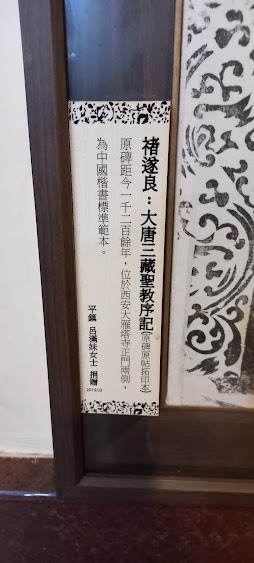 褚遂良：大唐三藏聖教序記(原碑原帖拓印本)
原碑距今一千二百餘年，位於西安大雁塔寺正門兩側，
為中國楷書標準範本。
平鎮 呂滿妹女士 捐贈